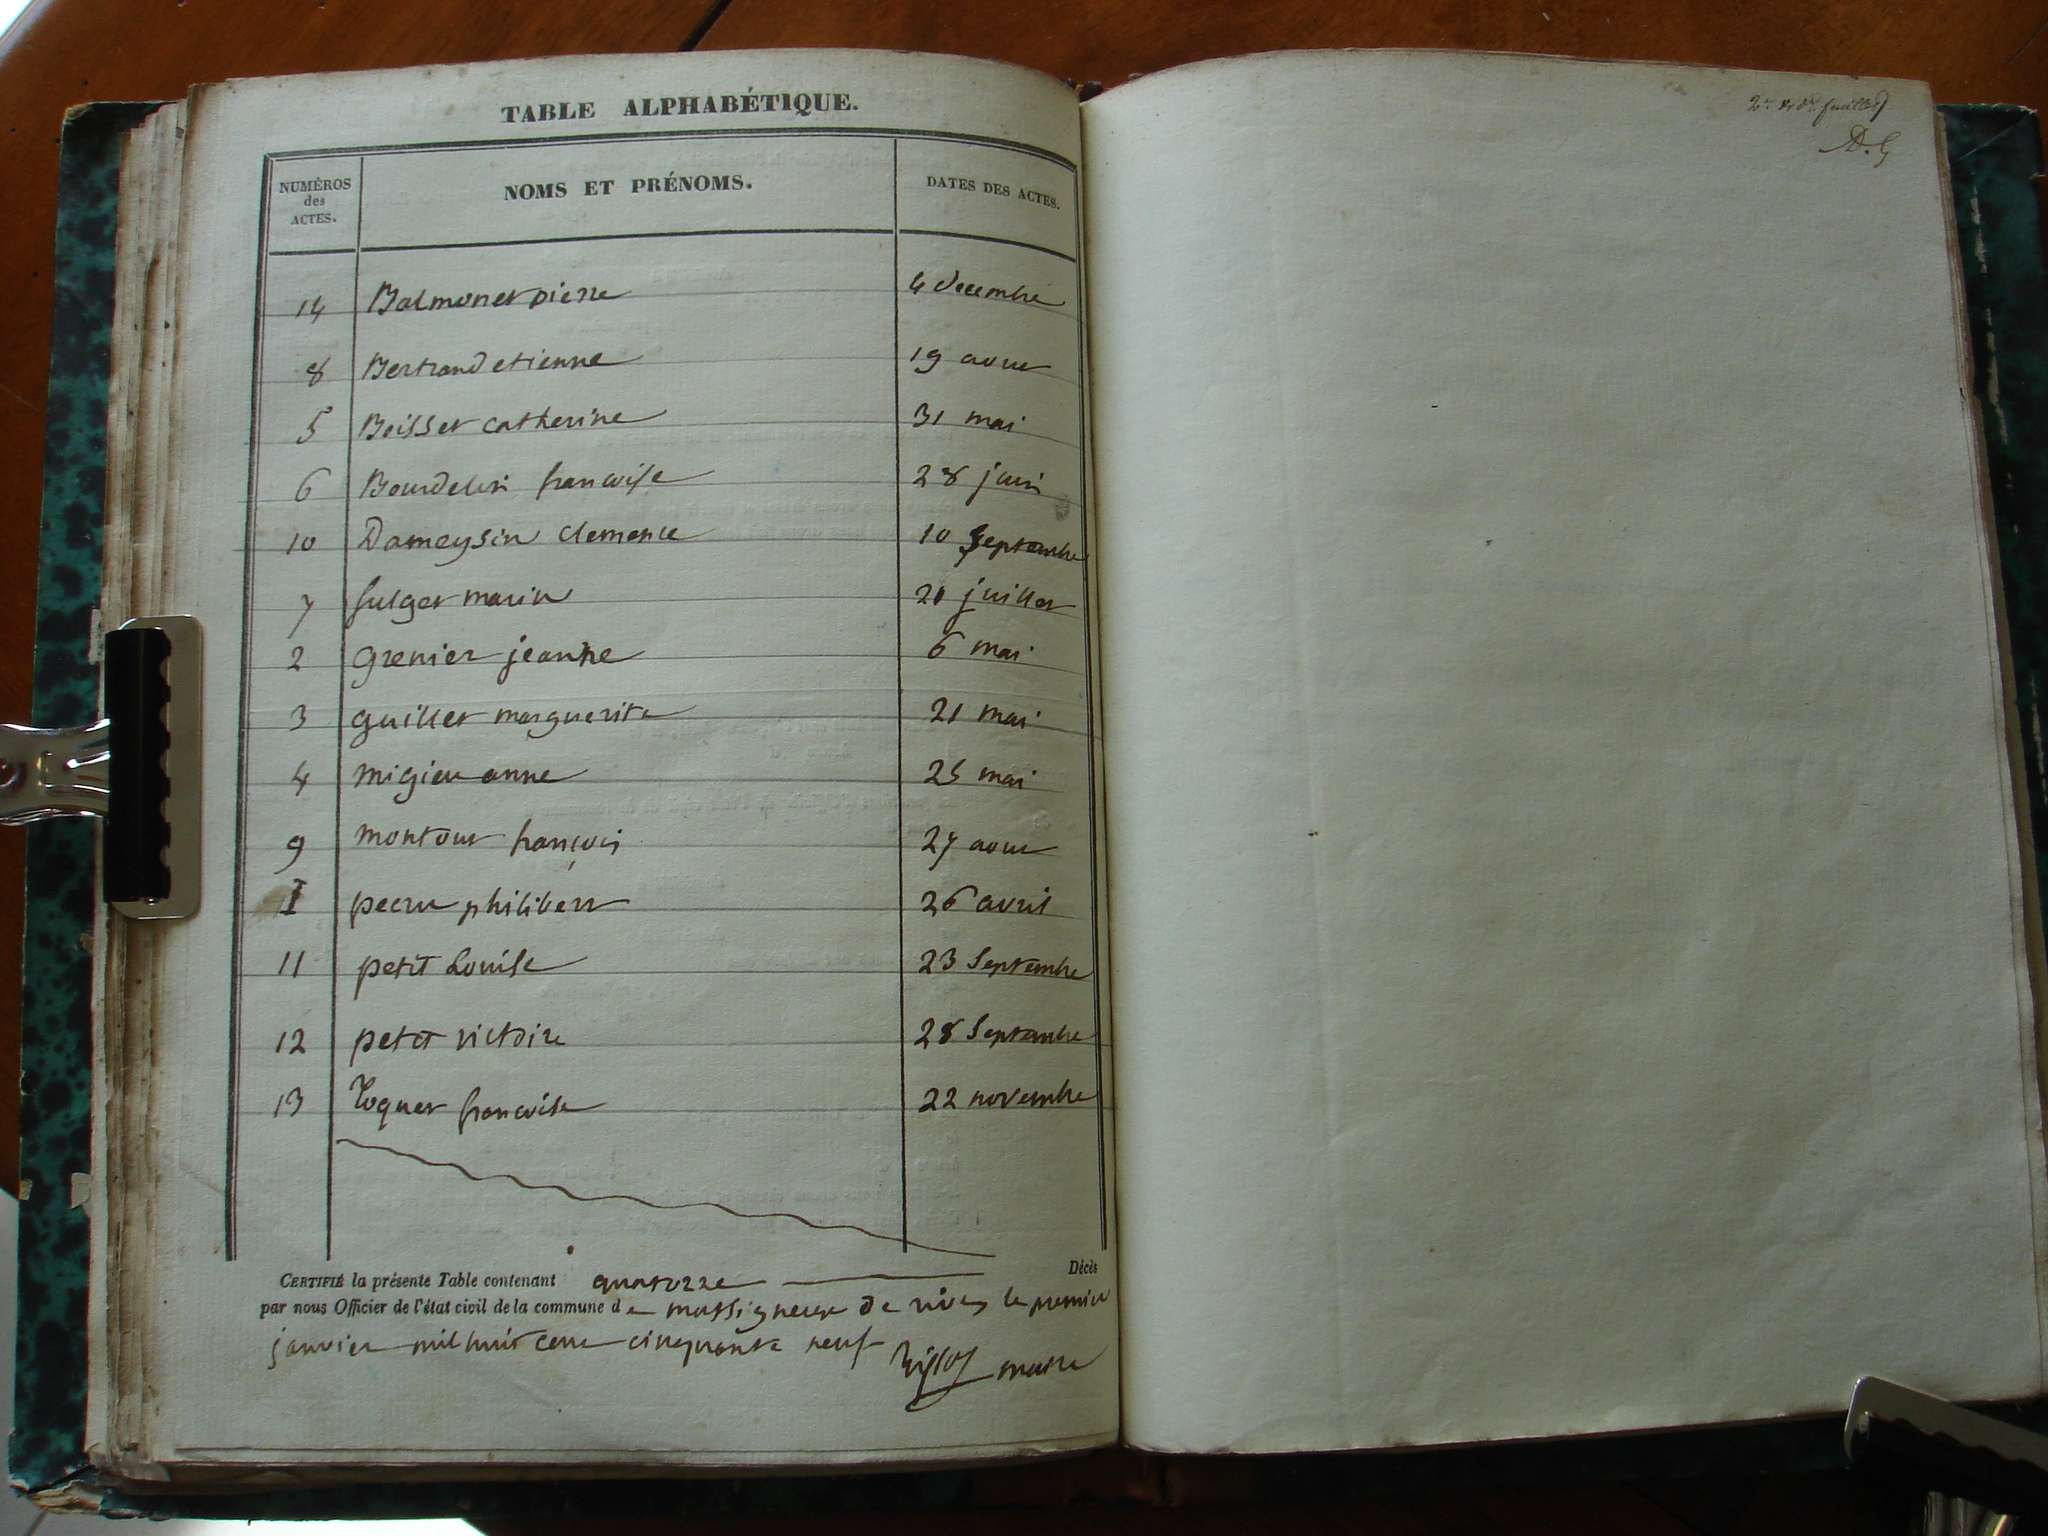 TABLE ALPHABÉTIQUE.
NUMÉROS des ACTES. NOMS ET PRÉNOMS. DATES DES ACTES.
14 Balmonet pierre 4 decembre
8 Bertrand etienne 19 aout
5 Boisset catherine 31 mai
6 Bourdelin francoise 28 juin
10 Dameysin clemence 10 Septembre
7 fulget marin 20 juillet
2 grenier jeanne 6 mai
3 guillet marguerite 21 mai
4 migieu anne 25 mai
9 montour françois 27 aout
I pecru philibert 26 avril
11 petit Louise 23 Septembre
12 petit victoire 28 Septembre
13 Toquet francoise 22 novembre
CERTIFIÉ la présente Table contenant quatorze Décès
par nous Officier de l'état civil de la commune de massigneux de rives le premier
janvier mil huit cent cinquante neuf maire
2e. & feuillet
D. G